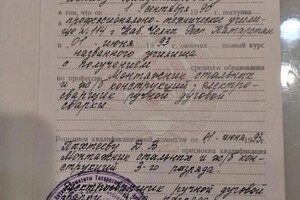 в том, что он 1 сентября 90 г. поступил
в профессионально-техническое учили-
ще № 114 г. Наб. Челны Респ. Татарстан
и 01 июня 93 г. окончил полный курс
названного училища
с получением среднего образования
по профессии Монтажник стальных
и ж/б конструкций; электро-
сварщик ручной дуговой
сварки
Решением квалификационной комиссии от 01 июня 93
Д. В. присвоена квалификация
Монтажник стальных и ж/б кон-
струкций 3-го разряда.
Электросварщик ручной дуговой